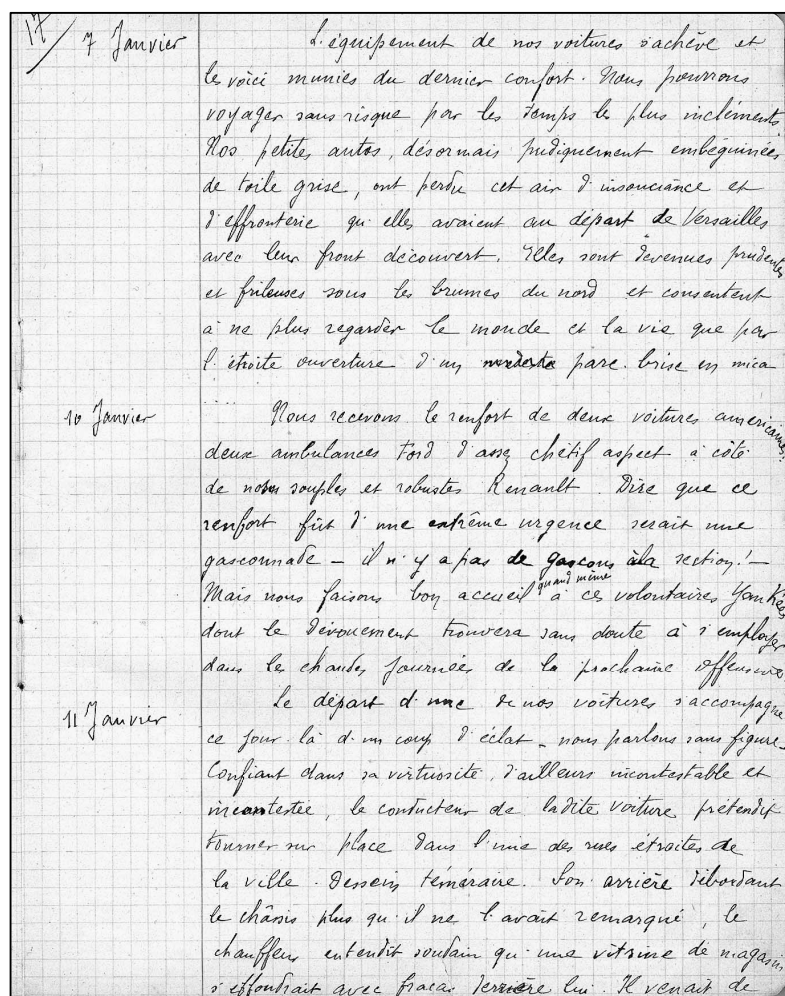 17/
7 Janvier
L'équipement de nos voitures s'achève et
les voici munies du dernier confort. Nous pourrons
voyager sans risque par les temps les plus incléments
Nos petites autos, désormais pudiquement embéguinées
de toile grise, ont perdu cet air d'insouciance et
d'effronterie qu'elles avaient au départ de Versailles
avec leur front découvert. Elles sont devenues prudentes
et frileuses sous les brumes du nord et consentent
à ne plus regarder le monde et la vie que par
l'étroite ouverture d'un modeste pare-brise en mica
....
10 Janvier
Nous recevons le renfort de deux voitures américaines:
deux ambulances Ford d'assez chétif aspect à côté
de nos souples et robustes Renault. Dire que ce
renfort fût d'une extrême urgence serait une
gasconnade - il n'y a pas de gascons à la section! -
Mais nous faisons bon accueil quand même à ces volontaires Yankees
dont le dévouement trouvera sans doute à s'employer
dans les chaudes journées de la prochaine offensive.
11 Janvier
Le départ d'une de nos voitures s'accompagne
ce jour-là d'un coup d'éclat - nous parlons sans figure -
Confiant dans sa virtuosité, d'ailleurs incontestable et
incontestée, le conducteur de ladite voiture prétendit
tourner sur place dans l'une des rues étroites de
la ville. Dessein téméraire. Son arrière débordant
le châssis plus qu'il ne l'avait remarqué, le
chauffeur entendit soudain qu'une vitrine de magasin
s'effondrait avec fracas derrière lui. Il venait de